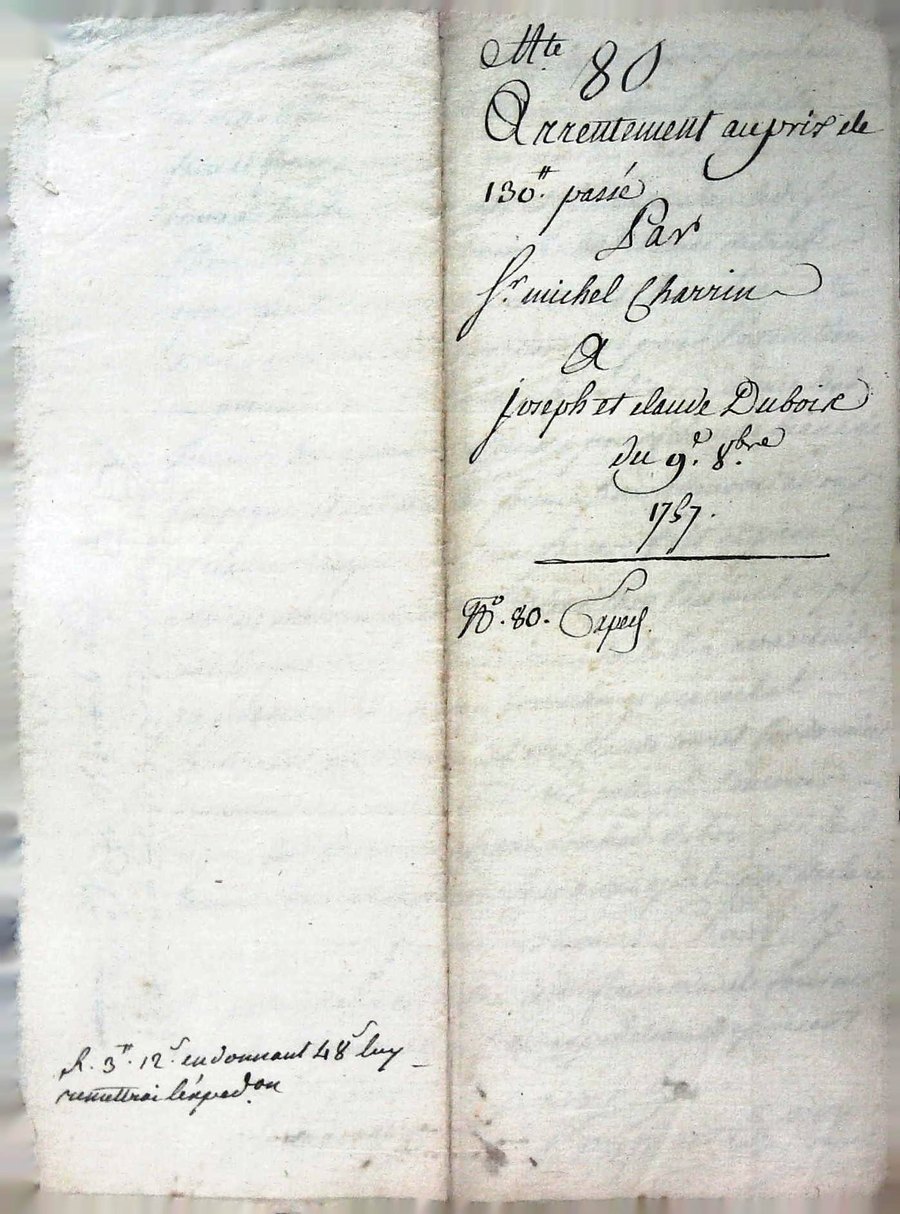 Mte 80
Arrentement au prix de
130tt. passé
Par
Sr. michel Charrin
A
Joseph et claude Duboix
du 9e. 8bre
1757.
No. 80. Exped.
R. 3tt. 12s. en donnant 48s luy
remettrai l'expedon